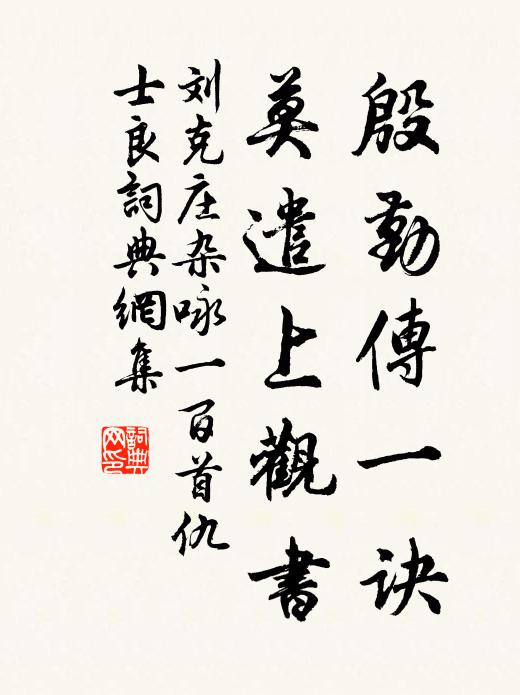 殷勤傳一诀
莫遣上觀書
刘克庄杂咏一百首仇
士良詞典網集
詞典网印